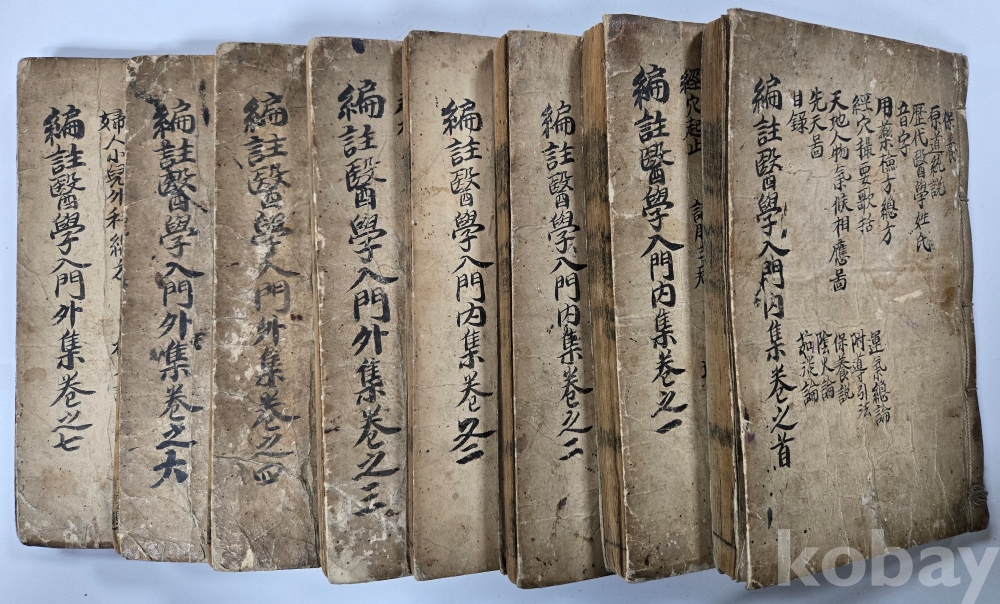 保養
原道統說
歷代醫學姓氏
音字
用藥檢方總方
經穴撮要歌括
天地人物氣候相應啚
先天啚
目錄
運氣總論
附導引法
保養說
陰火論
茹淡論
編註醫學入門內集卷之首
經穴起止
編註醫學入門內集卷之一
編註醫學入門內集卷之二
編註醫學入門內集卷又二
編註醫學入門外集卷之三
編註醫學入門外集卷之四
編註醫學入門外集卷之六
婦人小兒外科總方
編註醫學入門外集卷之七
kobay